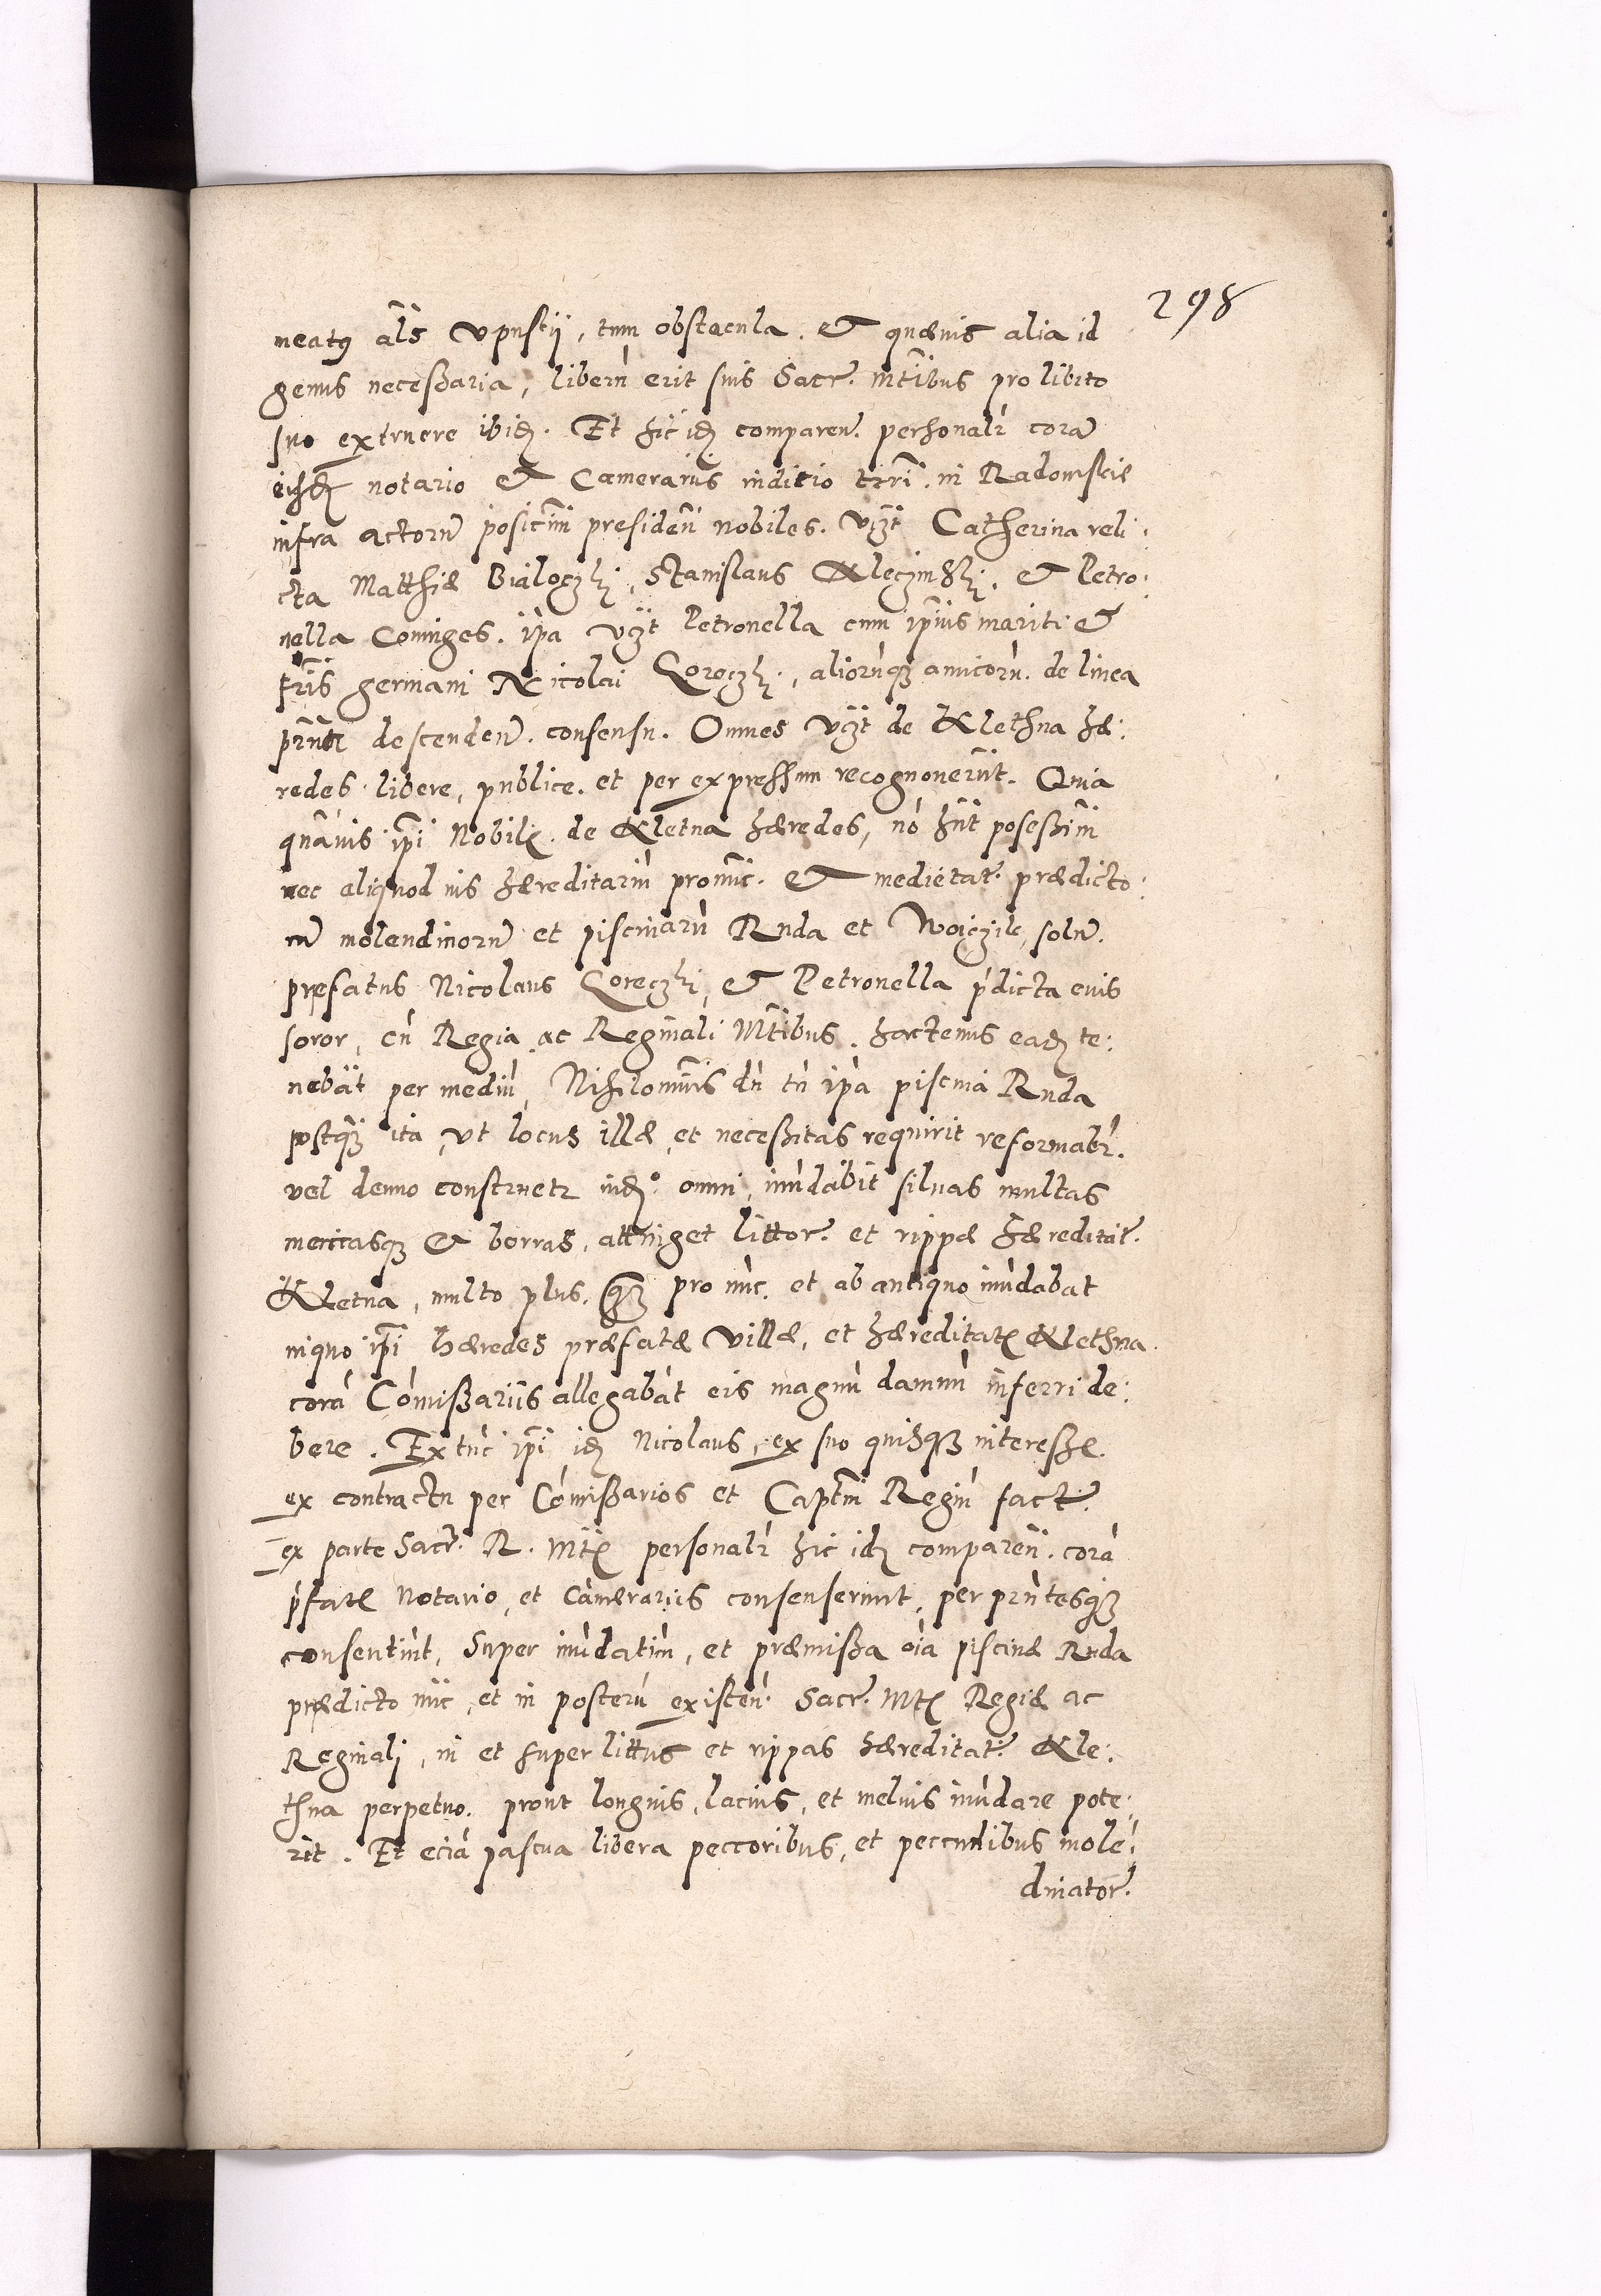 298
meatq als vpustij, tum obstacula. et quævis alia id
genus necessaria, liberu erit suis Sacr. mtibus pro libito
suo extruere ibid. Et hic id comparen. personalr cora
eisd notario et Camerarius iuditio trri. in Radomskie
infra actoru positim presiden nobiles. vzt Catherina reli:
cta Matthiæ Bialoczki, Stanislaus Kleczinski, et Petro:
nella Coniuges. ipa vzt Petronella cum ipius mariti et
fris germani Nicolai Loreczki, alioruqz amicoru. de linea
prntr descenden. consensu. Omnes vzt de Klethna hæ:
redes libere, publice. et per expressum recognoverut. Quia
quavis ipi Nobiles. de Kletna hæredes, no hnt posessim
nec aliquod ius hæreditariu pronuc. et medietat. prædicto:
ru molendinoru et piscinaru Ruda et Woiczik, solu.
præfatus Nicolaus Loreczki, et Petronella pdicta eius
soror, cu Regia ac Reginali Mtibus. hactenus ead te:
nebat per mediu, Nihilominis du tn ipa piscina Ruda
postqz ita, vt locus illæ, et necessitas requirit reformabr.
vel denuo construetr ind. omni, inudabit silvas multas
mericasqz et borras, attinget littor. et rippæ hæreditat.
Kletna, multo plus. qz pro nuc. et ab antiquo inudabat
in quo ipi hæredes præfatæ villæ, et hæreditatis Klethna.
cora Comissariis allegabat eis magnu damnu inferri de:
bere. Ex tuc ipi id Nicolaus, ex suo quisqz interesse.
ex contractu per Comissarios et Captm Regiu fact.
ex parte Sacr. R. Mtis personalr hic ide comparen. cora
pfate Notario, et Camerariis consenserunt, per prntesqz
consentiut, Super inudatim, et præmissa oia piscinæ Ruda
prædicto nuc, et in posteru existen. Sacr. Mtis Regiæ ac
Reginali, in et super littus et rippas hæreditat. Kle:
thna perpetuo. prout longius, lacius, et melius inudare pote:
rit. Et etia pascua libera peccoribus, et peccudibus mole:
dinator.